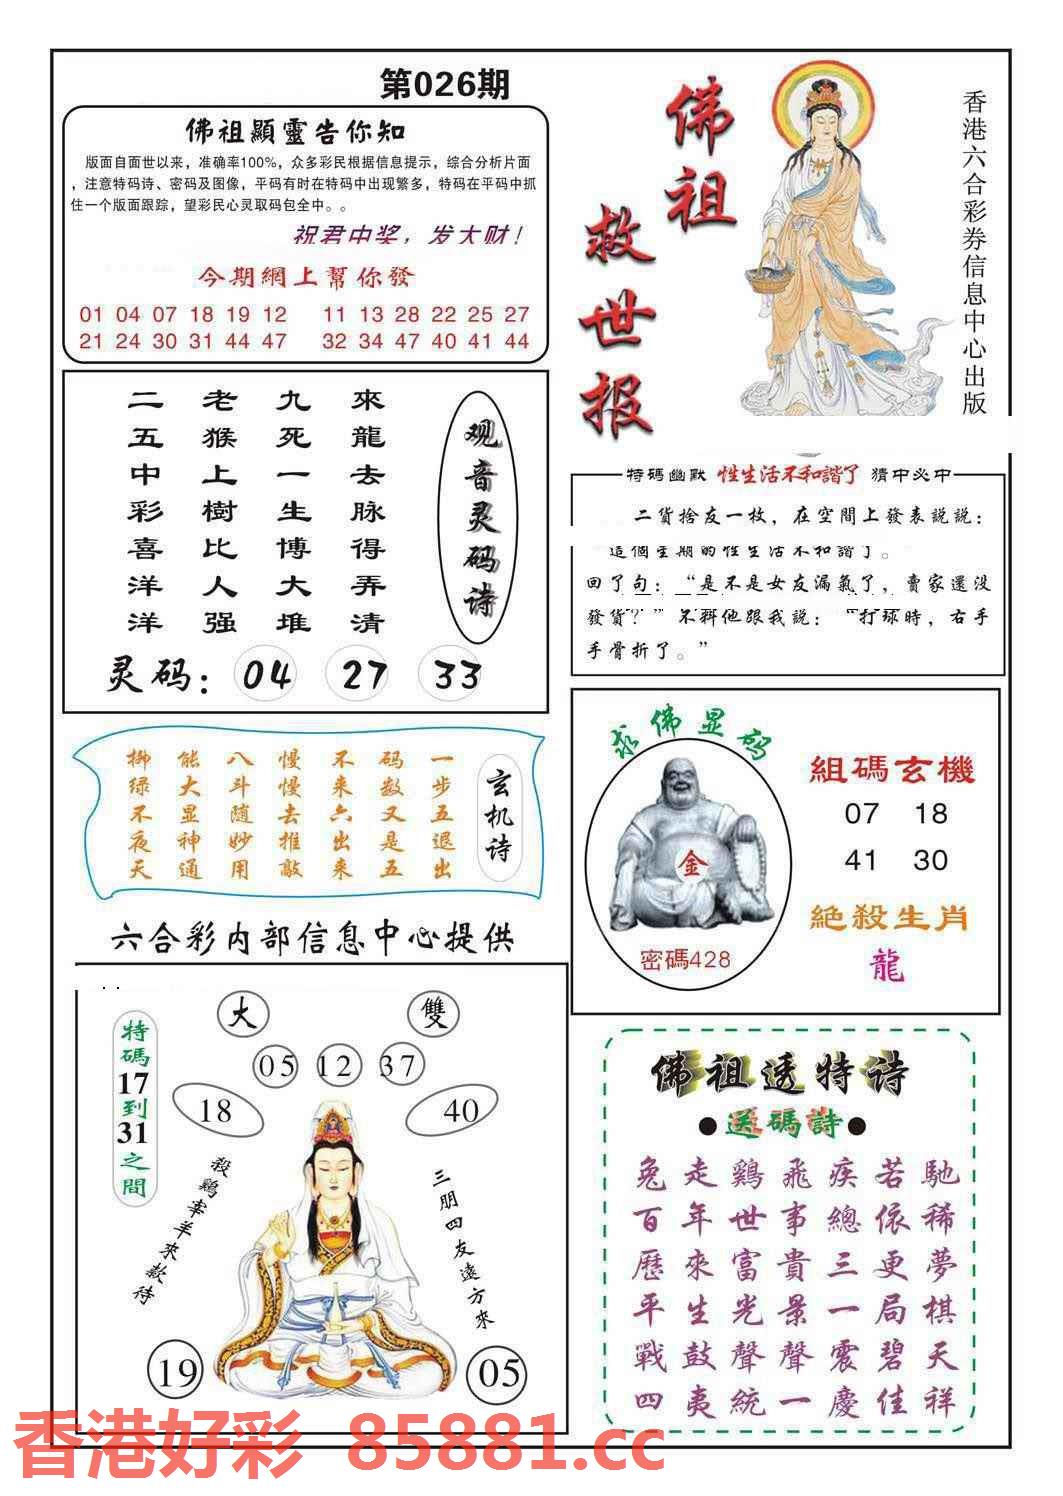 第026期
佛祖顯靈告你知
版面自面世以来，准确率100%，众多彩民根据信息提示，综合分析片面
，注意特码诗、密码及图像，平码有时在特码中出现繁多，特码在平码中抓
住一个版面跟踪，望彩民心灵取码包全中。。
祝君中奖，发大财！
今期網上幫你發
01 04 07 18 19 12 11 13 28 22 25 27
21 24 30 31 44 47 32 34 47 40 41 44
佛祖
救世报
香港六合彩券信息中心出版
來龍去脉得弄清
九死一生博大堆
老猴上樹比人强
二五中彩喜洋洋
观音灵码诗
灵码：04 27 33
特碼幽默 性生活不和諧了 猜中必中
二貨捨友一枚，在空間上發表説説：
這個星期的性生活不和諧了。
回了句：“是不是女友漏氣了，賣家還没
發貨？”不料他跟我説：“打球時，右手
手骨折了。”
玄机诗
一步五退出
码数又是五
不来六出来
慢慢去推敲
八斗随妙用
能大显神通
柳绿不夜天
六合彩内部信息中心提供
求佛显码
金
密碼428
組碼玄機
07 18
41 30
絶殺生肖
龍
大 雙
05 12 37
18 40
特碼17到31之間
殺鷄宰羊來款待
三朋四友遠方來
19 05
佛祖透特诗
●送碼詩●
兔走鷄飛疾若馳
百年世事總依稀
歷來富貴三更夢
平生光景一局棋
戰鼓聲聲震碧天
四夷統一慶佳祥
香港好彩 85881.cc